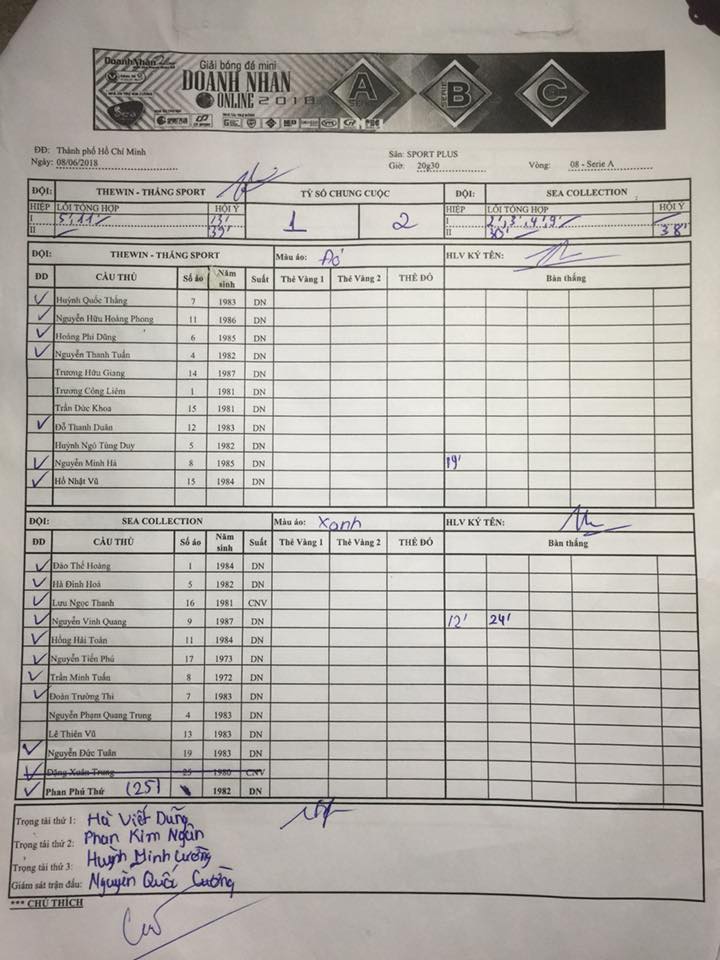 DoanhNhan
Giải bóng đá mini
DOANH NHAN
ONLINE 2018
A
B
C
SERIE
ĐĐ: Thành phố Hồ Chí Minh Sân: SPORT PLUS
Ngày: 08/06/2018 Giờ: 20g30 Vòng: 08 - Serie A
ĐỘI: THEWIN - THẮNG SPORT TỶ SỐ CHUNG CUỘC ĐỘI: SEA COLLECTION
HIỆP LỖI TỔNG HỢP HỘI Ý 1 2 HIỆP LỖI TỔNG HỢP HỘI Ý
I 5', 11' 13' I 2', 3', 4', 9'
II 39' II 30' 38'
ĐỘI: THEWIN - THẮNG SPORT Màu áo: Đỏ HLV KÝ TÊN:
DD CẦU THỦ Số áo Năm sinh Suất Thẻ Vàng 1 Thẻ Vàng 2 THẺ ĐỎ Bàn thắng
✓ Huỳnh Quốc Thắng 7 1983 DN
✓ Nguyễn Hữu Hoàng Phong 11 1986 DN
✓ Hoàng Phi Dũng 6 1985 DN
✓ Nguyễn Thanh Tuấn 4 1982 DN
Trương Hữu Giang 14 1987 DN
Trương Công Liêm 1 1981 DN
Trần Đức Khoa 15 1981 DN
✓ Đỗ Thanh Duân 12 1983 DN
Huỳnh Ngô Tùng Duy 5 1982 DN
✓ Nguyễn Minh Hà 8 1985 DN 19'
✓ Hồ Nhật Vũ 15 1984 DN
ĐỘI: SEA COLLECTION Màu áo: Xanh HLV KÝ TÊN:
DD CẦU THỦ Số áo Năm sinh Suất Thẻ Vàng 1 Thẻ Vàng 2 THẺ ĐỎ Bàn thắng
✓ Đào Thế Hoàng 1 1984 DN
✓ Hà Đình Hoá 5 1982 DN
✓ Lưu Ngọc Thanh 16 1981 CNV
✓ Nguyễn Vinh Quang 9 1987 DN 12' 24'
✓ Hồng Hải Toàn 11 1984 DN
✓ Nguyễn Tiến Phú 17 1973 DN
✓ Trần Minh Tuấn 8 1972 DN
✓ Đoàn Trường Thi 7 1983 DN
Nguyễn Phạm Quang Trung 4 1983 DN
Lê Thiên Vũ 13 1983 DN
✓ Nguyễn Đức Tuân 19 1983 DN
✓ Đặng Xuân Trung 25 1980 CNV
✓ Phan Phú Thứ (25) 1982 DN
Trọng tài thứ 1: Hà Viết Dũng
Trọng tài thứ 2: Phan Kim Ngân
Trọng tài thứ 3: Huỳnh Minh Cường
Giám sát trận đấu: Nguyễn Quốc Cường
*** CHÚ THÍCH